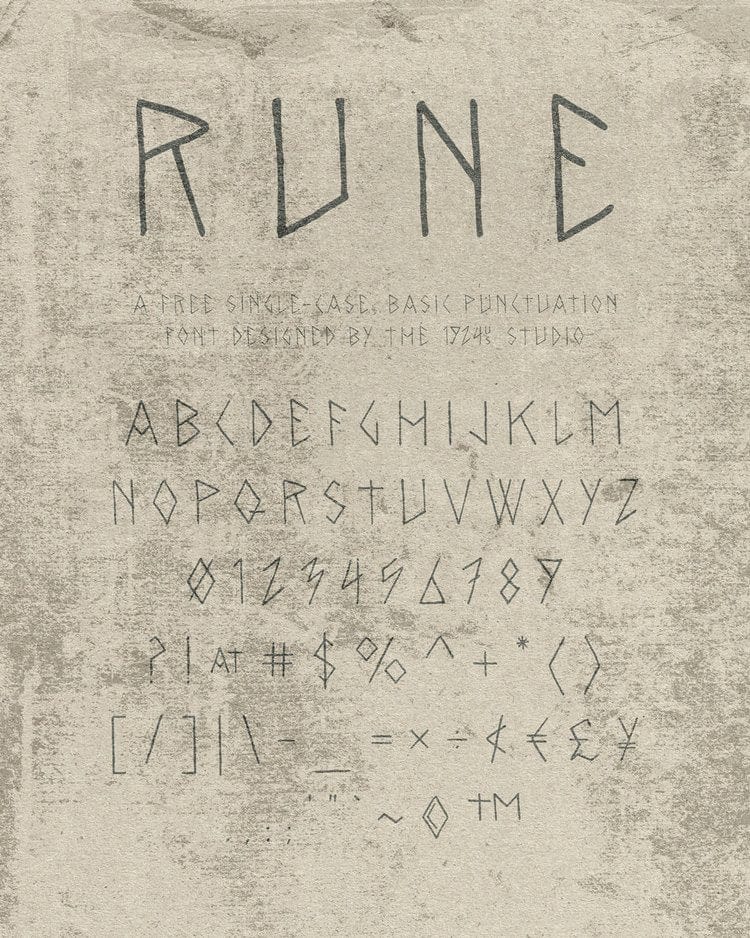 RUNE
A FREE SINGLE-CASE, BASIC PUNCTUATION
FONT DESIGNED BY THE 1924US STUDIO
ABCDEFGHIJKLM
NOPQRSTUVWXYZ
0123456789
?!AT#$%^+*()
[/]|\-_=×÷¢€£¥
.,:;'"`~◊TM